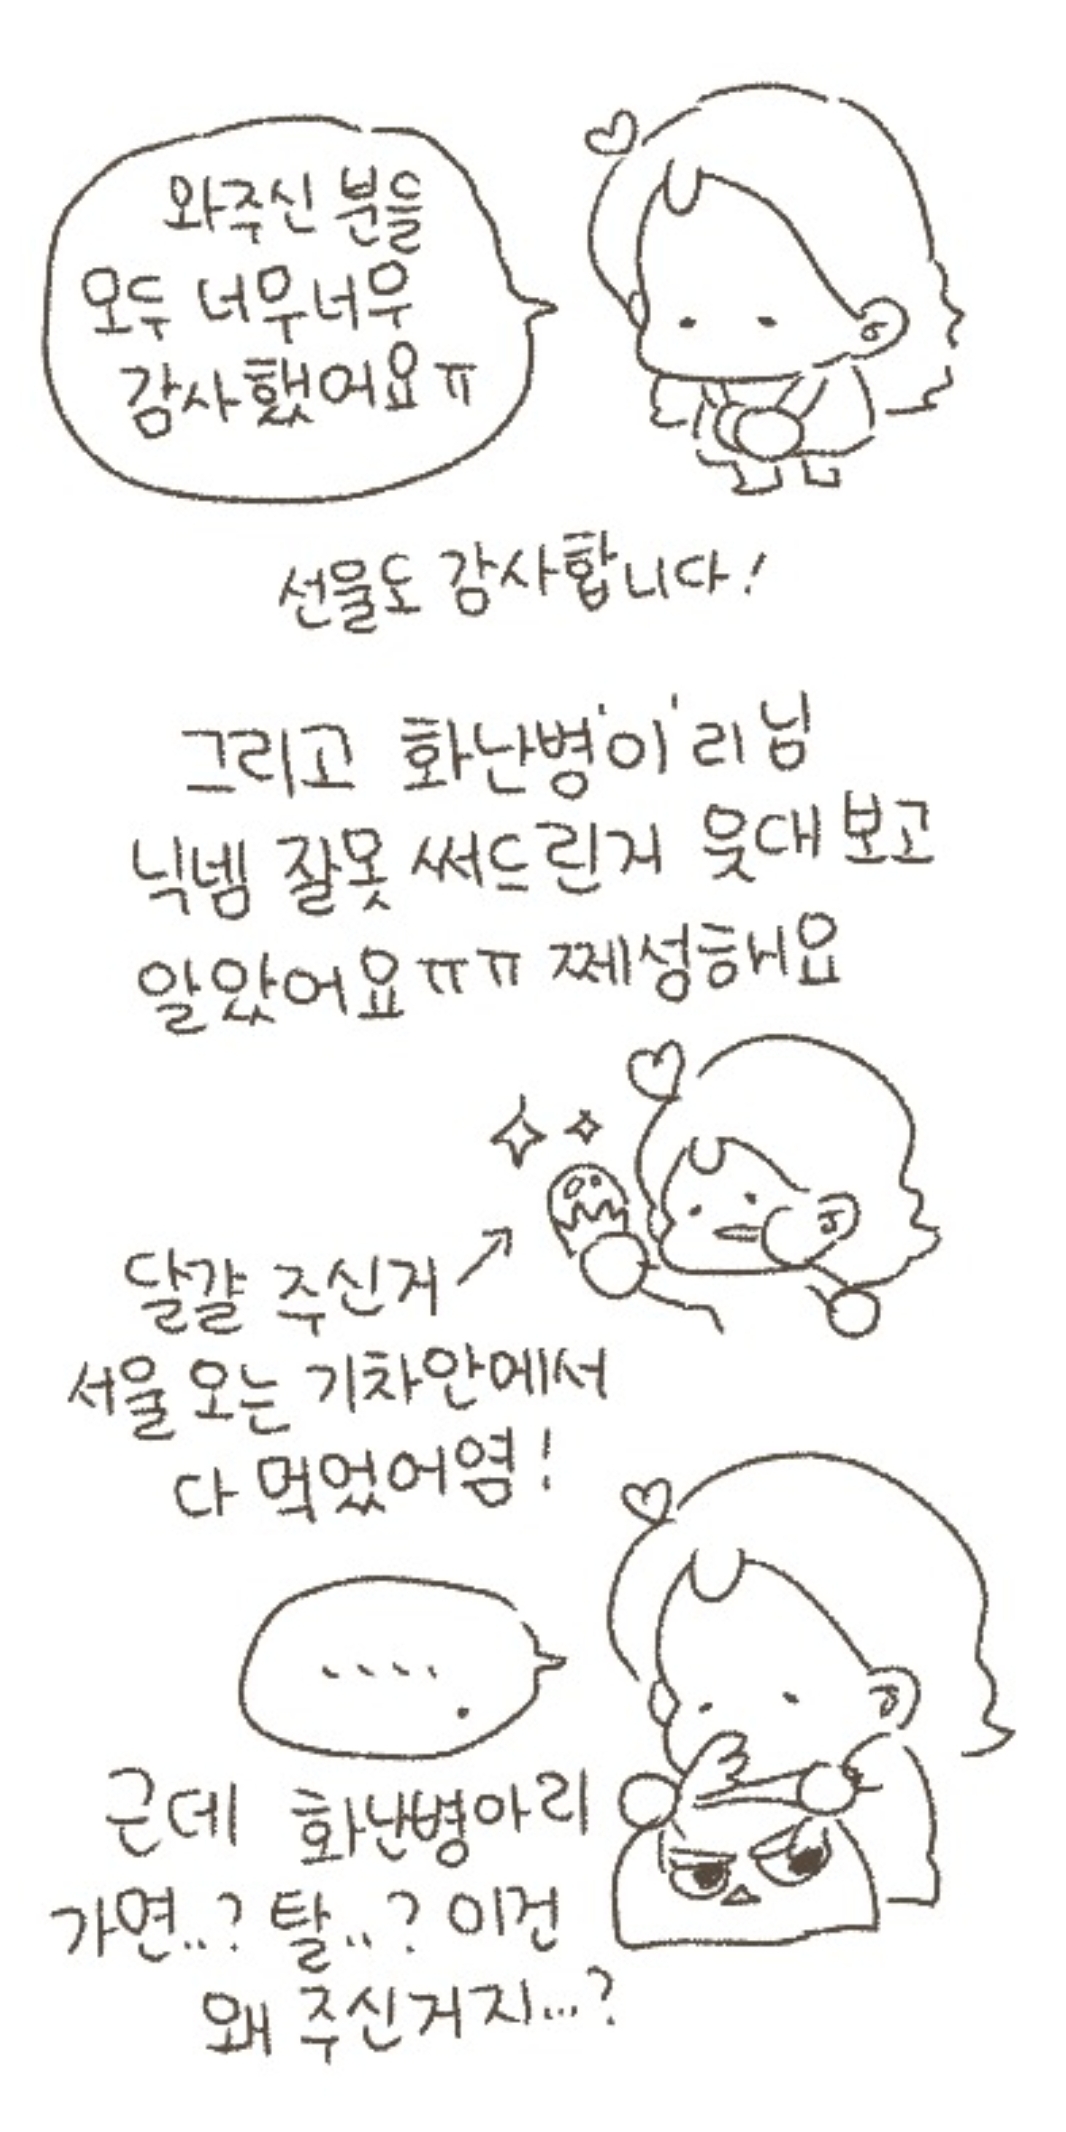 와주신 분들
모두 너무너무
감사했어요ㅠ
선물도 감사합니다!
그리고 화난병'이'리님
닉넴 잘못 써드린거 읏대 보고
알았어요ㅠㅠ 쩨성해요
달걀 주신거
서울 오는 기차안에서
다 먹었어염!
....
.
근데 화난병아리
가면..? 탈..? 이건
왜 주신거지...?